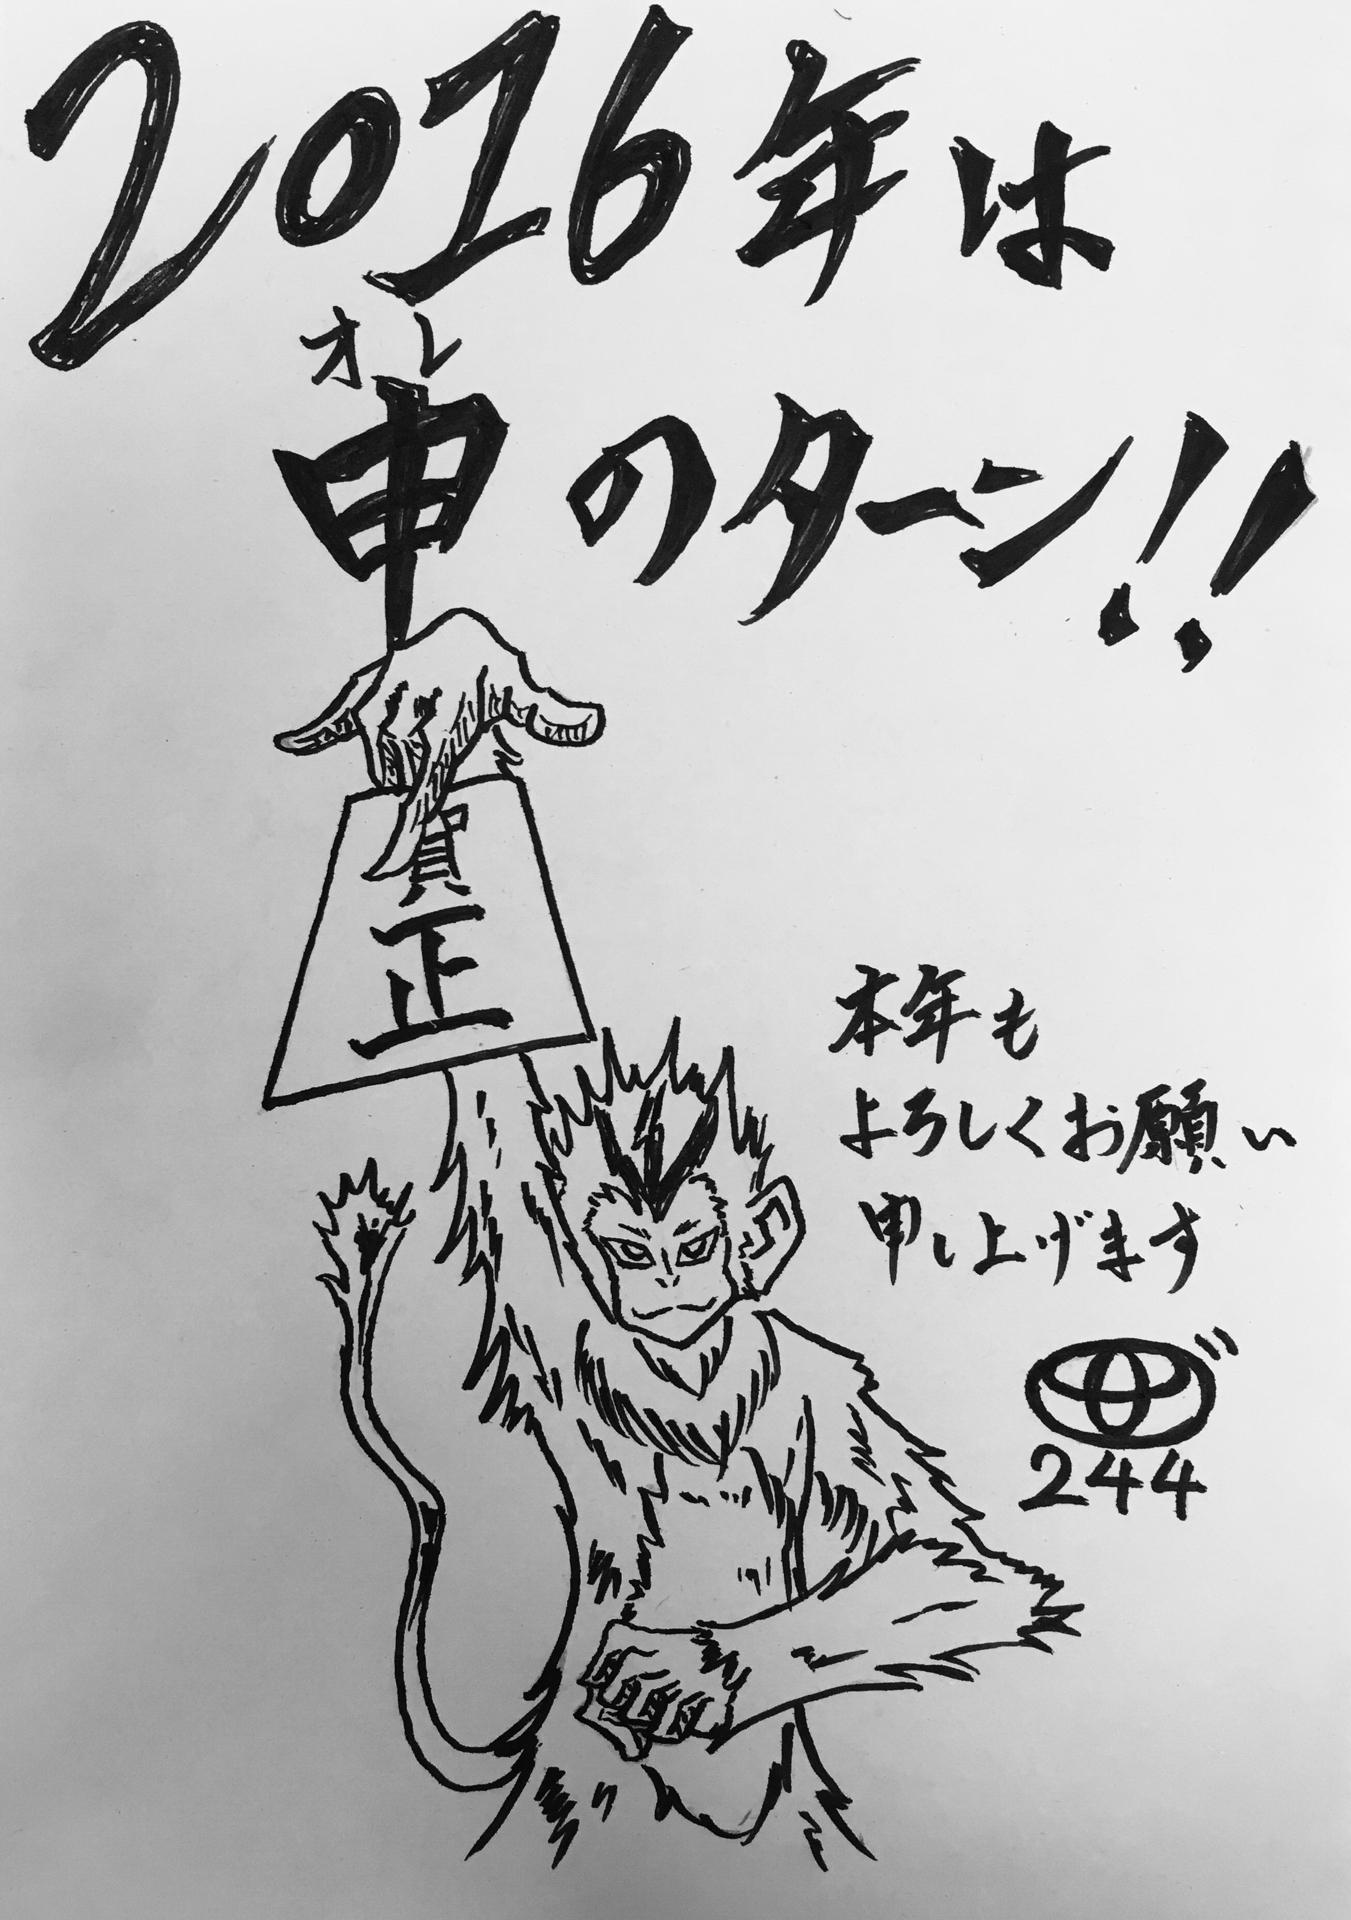 2016年は
オレ
申のターン!!
賀
正
本年も
よろしくお願い
申し上げます
244